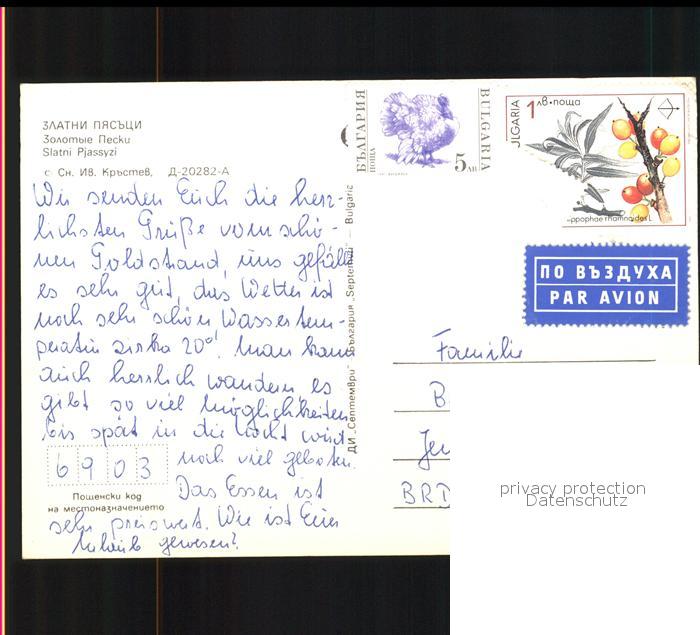 ЗЛАТНИ ПЯСЪЦИ
Золотые Пески
Slatni Pjassyzi
с Сн. Ив. Кръстев, Д-20282-А
Wir senden Euch die herz-
lichsten Grüße vom schö-
nen Goldstrand, uns gefällt
es sehr gut, das Wetter ist
noch sehr schön Wassertem-
peratur zirka 20°! Man kann
auch herrlich wandern es
gibt so viel Möglichkeiten
bis spät in die Nacht wird
noch viel geboten.
Das Essen ist
sehr preiswert. Wie ist Euer
Urlaub gewesen?
6903
Пощенски код
на местоназначението
ДИ „Септември" „България „Septemvri" — Bulgaric
БЪЛГАРИЯ
ПОЩА
5 ЛВ
BULGARIA
ULGARIA
1 лв·поща
ppophae rhamnoides L.
ПО ВЪЗДУХА
PAR AVION
Familie
B
Jen
BRD
privacy protection
Datenschutz